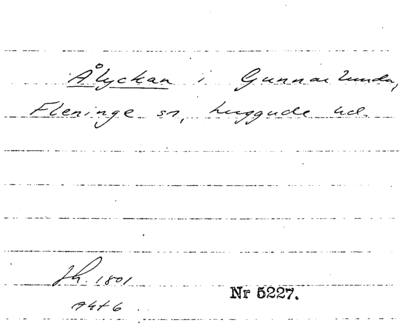 Ålyckan i Gunnarlunda,
Fleninge sn, Luggude hd.
Jh. 1801
Akt 6
Nr 5227.